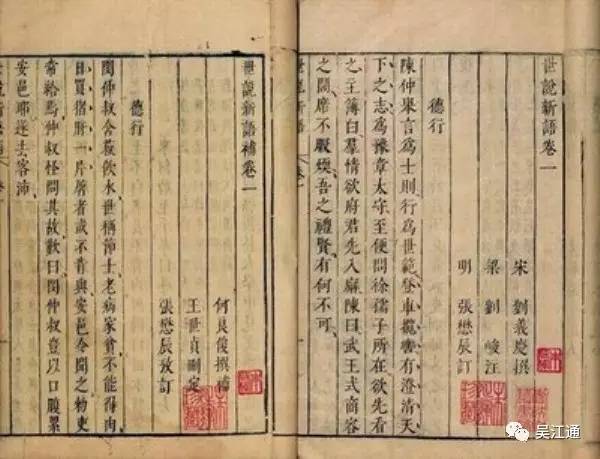 世說新語卷一
宋 劉義慶撰
梁 劉峻注
明 張懋辰訂
德行
陳仲舉言爲士則行爲世範登車攬轡有澄清天
下之志爲豫章太守至便問徐孺子所在欲先看
之主簿白羣情欲府君先入廨陳曰武王式商容
之閭席不暇煖吾之禮賢有何不可
世說新語
世說新語補卷一
何良俊撰補
王世貞刪定
張懋辰攷訂
德行
閔仲叔含菽飲水世稱節士老病家貧不能得肉
日買猪肝一片屠者或不肯與安邑令聞之勑吏
常給焉仲叔怪問其故歎曰閔仲叔豈以口腹累
安邑耶遂去客沛
吴江通